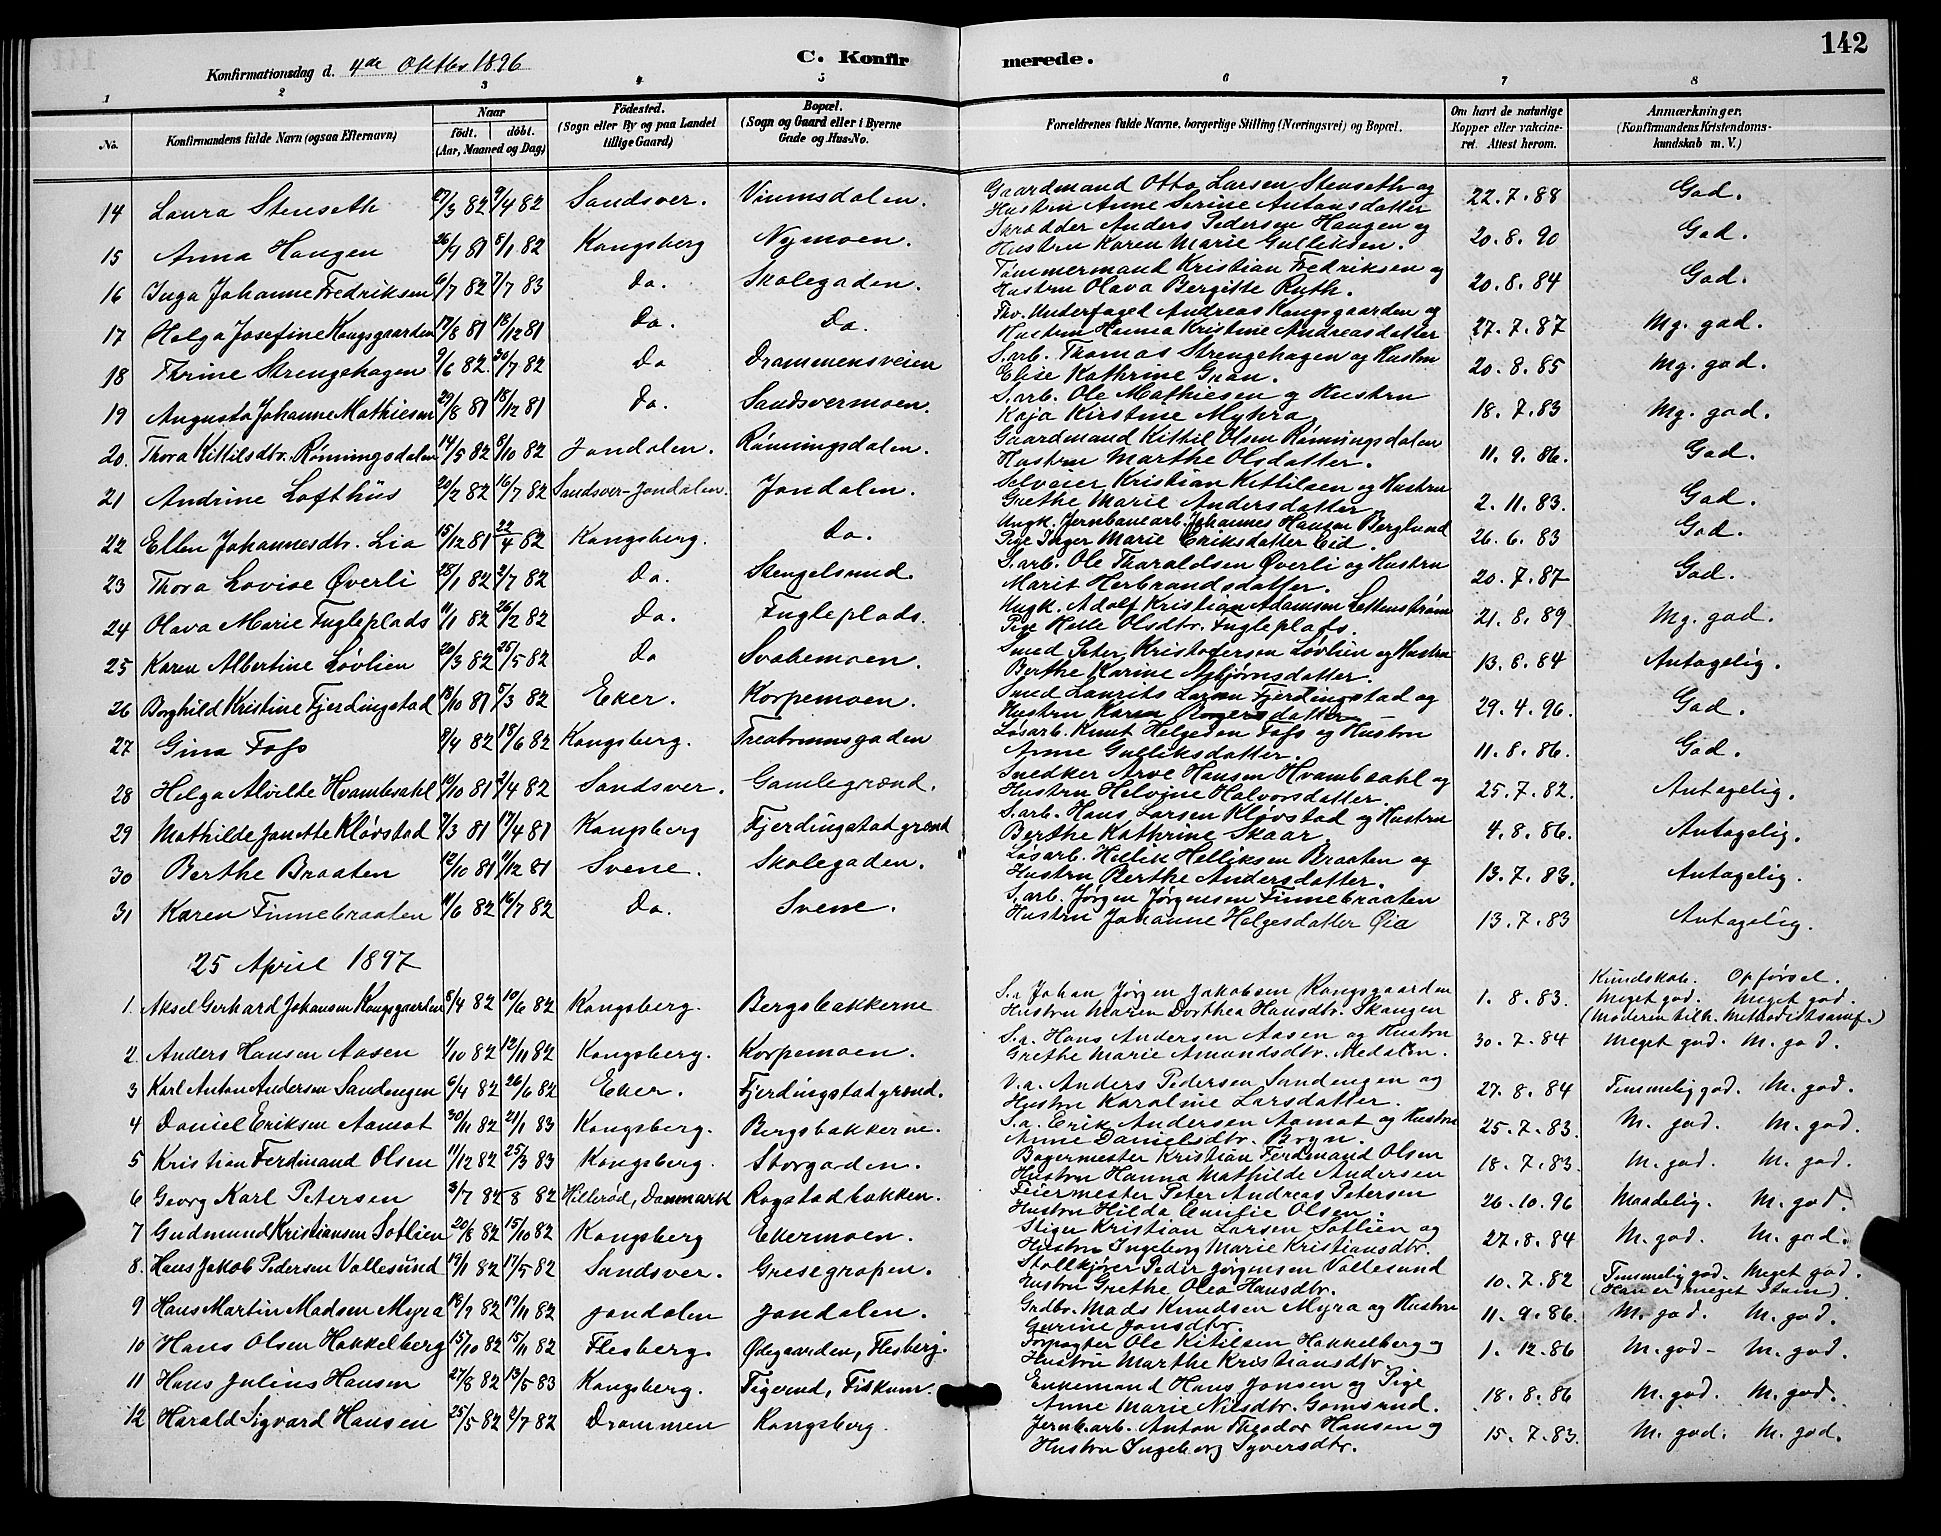 142
Konfirmationsdag d. 4de Oktbr 1896 C. Konfirmerede.
1 2 3 4 5 6 7 8
No. Konfirmandens fulde Navn (ogsaa Efternavn) Naar født. døbt. (Aar, Maaned og Dag) Fødested. (Sogn eller By og paa Landet tillige Gaard) Bopæl. (Sogn og Gaard eller i Byerne Gade og Hus-No. Forældrenes fulde Navne, borgerlige Stilling (Næringsvei) og Bopæl. Om havt de naturlige Kopper eller vakcineret. Attest herom. Anmærkninger. (Konfirmandens Kristendomskundskab m. V.)
14 Laura Stenseth 27/3 82 9/4 82 Sandsver. Vinmsdalen. Gaardmand Otto Larsen Stenseth og Hustru Anne Serine Antonsdatter 22.7.88 God.
15 Anna Haugen 26/9 81 8/1 82 Kongsberg Nymoen. Skrædder Anders Pedersen Haugen og Hustru Karen Marie Gulliksen. 20.8.90 God.
16 Inga Johanne Fredriksen 6/7 82 7/7 83 Do. Skolegaden. Tømmermand Kristian Fredriksen og Hustru Olava Bergitte Ruth. 20.8.84 God.
17 Helga Josefine Kongsgaarden 17/8 81 18/12 81 Do. Do. Fhv. Underfoged Andreas Kongsgaarden og Hustru Hanna Kristine Andreasdatter 27.7.87 Mg. god.
18 Thrine Strengehagen 9/6 82. 30/7 82 Do Drammensveien S.arb. Thomas Strengehagen og Hustru Elise Kathrine Gran. 20.8.85 Mg. god.
19 Augusta Johanne Mathiesen 29/8 81 18/12 81 Do. Sandsvermoen. S.arb. Ole Mathiesen og Hustru Kaja Kirstine Myhra 18.7.83 Mg. god.
20. Thora Kittilsdtr. Rønningsdalen 14/5 82 8/10 82 Jondalen. Rønningsdalen. Gaardmand Kittil Olsen Rønningsdalen Hustru Marthe Olsdatter. 11.9.86. God.
21 Andrine Lofthus 20/2 82 16/7 82 Sandsver-Jondalen. Jondalen. Selveier Kristian Kittilsen og Hustru Grethe Marie Andersdatter 2.11.83. God.
22 Ellen Johannesdtr. Lia 15/12 81 22/4 82 Kongsberg. Do. Ungk. Jernbanearb. Johannes Hansen Berglund Pige Inger Marie Eriksdatter Eid. 26.6.83 God.
23 Thora Lovise Øverli 28/1 82 2/7 82 Do. Stengelsrud. S.arb. Ole Tharaldsen Øverli og Hustru Marit Herbrandsdatter. 20.7.87 God.
24 Olava Marie Fugleplads 11/1 82 26/2 82 Do. Fugleplads. Ungk. Adolf Kristian Adamsen Lettenstrøm Pige Helle Olsdtr. Fugleplads. 21.8.89. Mg. god.
25 Karen Albertine Løvlien 20/3 82 25/5 82 Do Svabemoen. Smed Peter Kristofersen Løvlien og Hustru Berthe Karine Asbjørnsdatter. 13.8.84 Antagelig.
26 Borghild Kristine Fjerdingstad 18/10 81 5/3 82 Eker. Korpemoen. Smed Laurits Larsen Fjerdingstad og Hustru Karen datter 29.4.96. God.
27. Gina Fofs 8/4 82 18/6 82 Kongsberg. Treatrumsgaden Løsarb. Knut Helgesen Fofs og Hustru Anne Gulliksdatter. 11.8.86. God.
28 Helga Alvilde Hvambsahl 10/10 81 2/4 82 Sandsver. Gamlegrænd. Snedker Arve Hansen Hvambsahl og Hustru Helvine Halvorsdatter. 25.7.82. Antagelig.
29 Mathilde Janette Kløvstad 7/3 81 17/4 81 Kongsberg Fjerdingstadgrænd S.arb. Hans Larsen Kløvstad og Hustru Berthe Kathrine Skaar. 4.8.86. Antagelig.
30 Berthe Braaten 12/10 81 11/12 81 Svene. Skolegaden. Løsarb. Hellik Helliksen Braaten og Hustru Berthe Andersdatter. 13.7.83. Antagelig.
31 Karen Finnebraaten 11/6 82 16/7 82 Do. Svene. S.arb. Jørgen Jørgensen Finnebraaten Hustru Johanne Helgesdatter Øia 13.7.83 Antagelig.
25 April 1897
Kundskab. Opførsel.
1. Aksel Gerhard Johansen Kongsgaarden 8/4 82 10/6 82 Kongsberg. Bergsbakkerne S.a Johan Jørgen Jakobsen Kongsgaarden Hustru Maren Dorthea Hansdtr. Skaugen 1.8.83. Meget god. Meget god. (Moderen tilh. Methodistsamf.)
2. Anders Hansen Aasen 1/10 82 12/11 82 Kongsberg. Korpemoen. S.a. Hans Andersen Aasen og Hustru Grethe Marie Amundsdtr. Medalen. 30.7.84 Meget god. M. god.
3 Karl Anton Andersen Sandengen 6/4 82 26/6 82 Eker. Fjerdingstadgrænd. V.a. Anders Pedersen Sandengen og Hustru Karoline Larsdatter. 27.8.84 Temmelig god. M. god.
4 Daniel Eriksen Aamot 30/11 82 21/1 83 Kongsberg. Bergsbakkerne. S.a. Erik Andersen Aamot og Hustru Anne Danielsdtr. Bryn. 25.7.83. M. god. M. god.
5 Kristian Ferdinand Olsen 11/12 82 25/3 83 Kongsberg. Storgaden. Bagermester Kristian Ferdinand Olsen Hustru Hanna Mathilde Andersen 18.7.83. M. god. M. god.
6 Georg Karl Petersen 3/7 82 -/8 82 Hillerød, Danmark Rogstadbakken. Feiermester Peter Andreas Petersen Hustru Hilda Emilie Olsen. 26.10.96 Maadelig. M. god.
7 Gudmund Kristiansen Sotlien 20/8 82 15/10 82 Kongsberg Ekermoen. Stiger Kristian Larsen Sotlien og Hustru Ingeborg Marie Kristiansdtr. 27.8.84 M. god. M. god.
8. Hans Jakob Pedersen Vallesund 19/1 82 17/5 82 Sandsver. Gresegropen. Stollkjører Peder Jørgensen Vallesund Hustru Grethe Olea Hansdtr. 10.7.82 Temmelig god. Meget god. (Han er meget Stam).
9 Hans Martin Madsen Myra 18/9 82 19/11 82 Jondalen Jondalen. Grdbr. Mads Knudsen Myra og Hustru Gurine Jonsdtr. 11.9.86. M. god. M. god.
10 Hans Olsen Hakkelberg 15/10 82 15/11 82 Flesberg. Ødegaarden, Flesberg. Forpagter Ole Kitilsen Hakkelberg og Hustru Marthe Kristiansdtr. 1.12.86 M. god- M. god.
11 Hans Julius Hansen 27/8 82 13/5 83 Kongsberg. Tigerud, Fiskum. Enkemand Hans Jonsen og Pige Anne Marie Nilsdtr. Gomsrud. 18.8.86 M. god. M. god.
12 Harald Sigvard Hansen 25/5 82 2/7 82 Drammen Kongsberg. Jernb.arb. Anton Theodor Hansen og Hustru Ingeborg Syversdtr. 15.7.83. M. god. M. god.